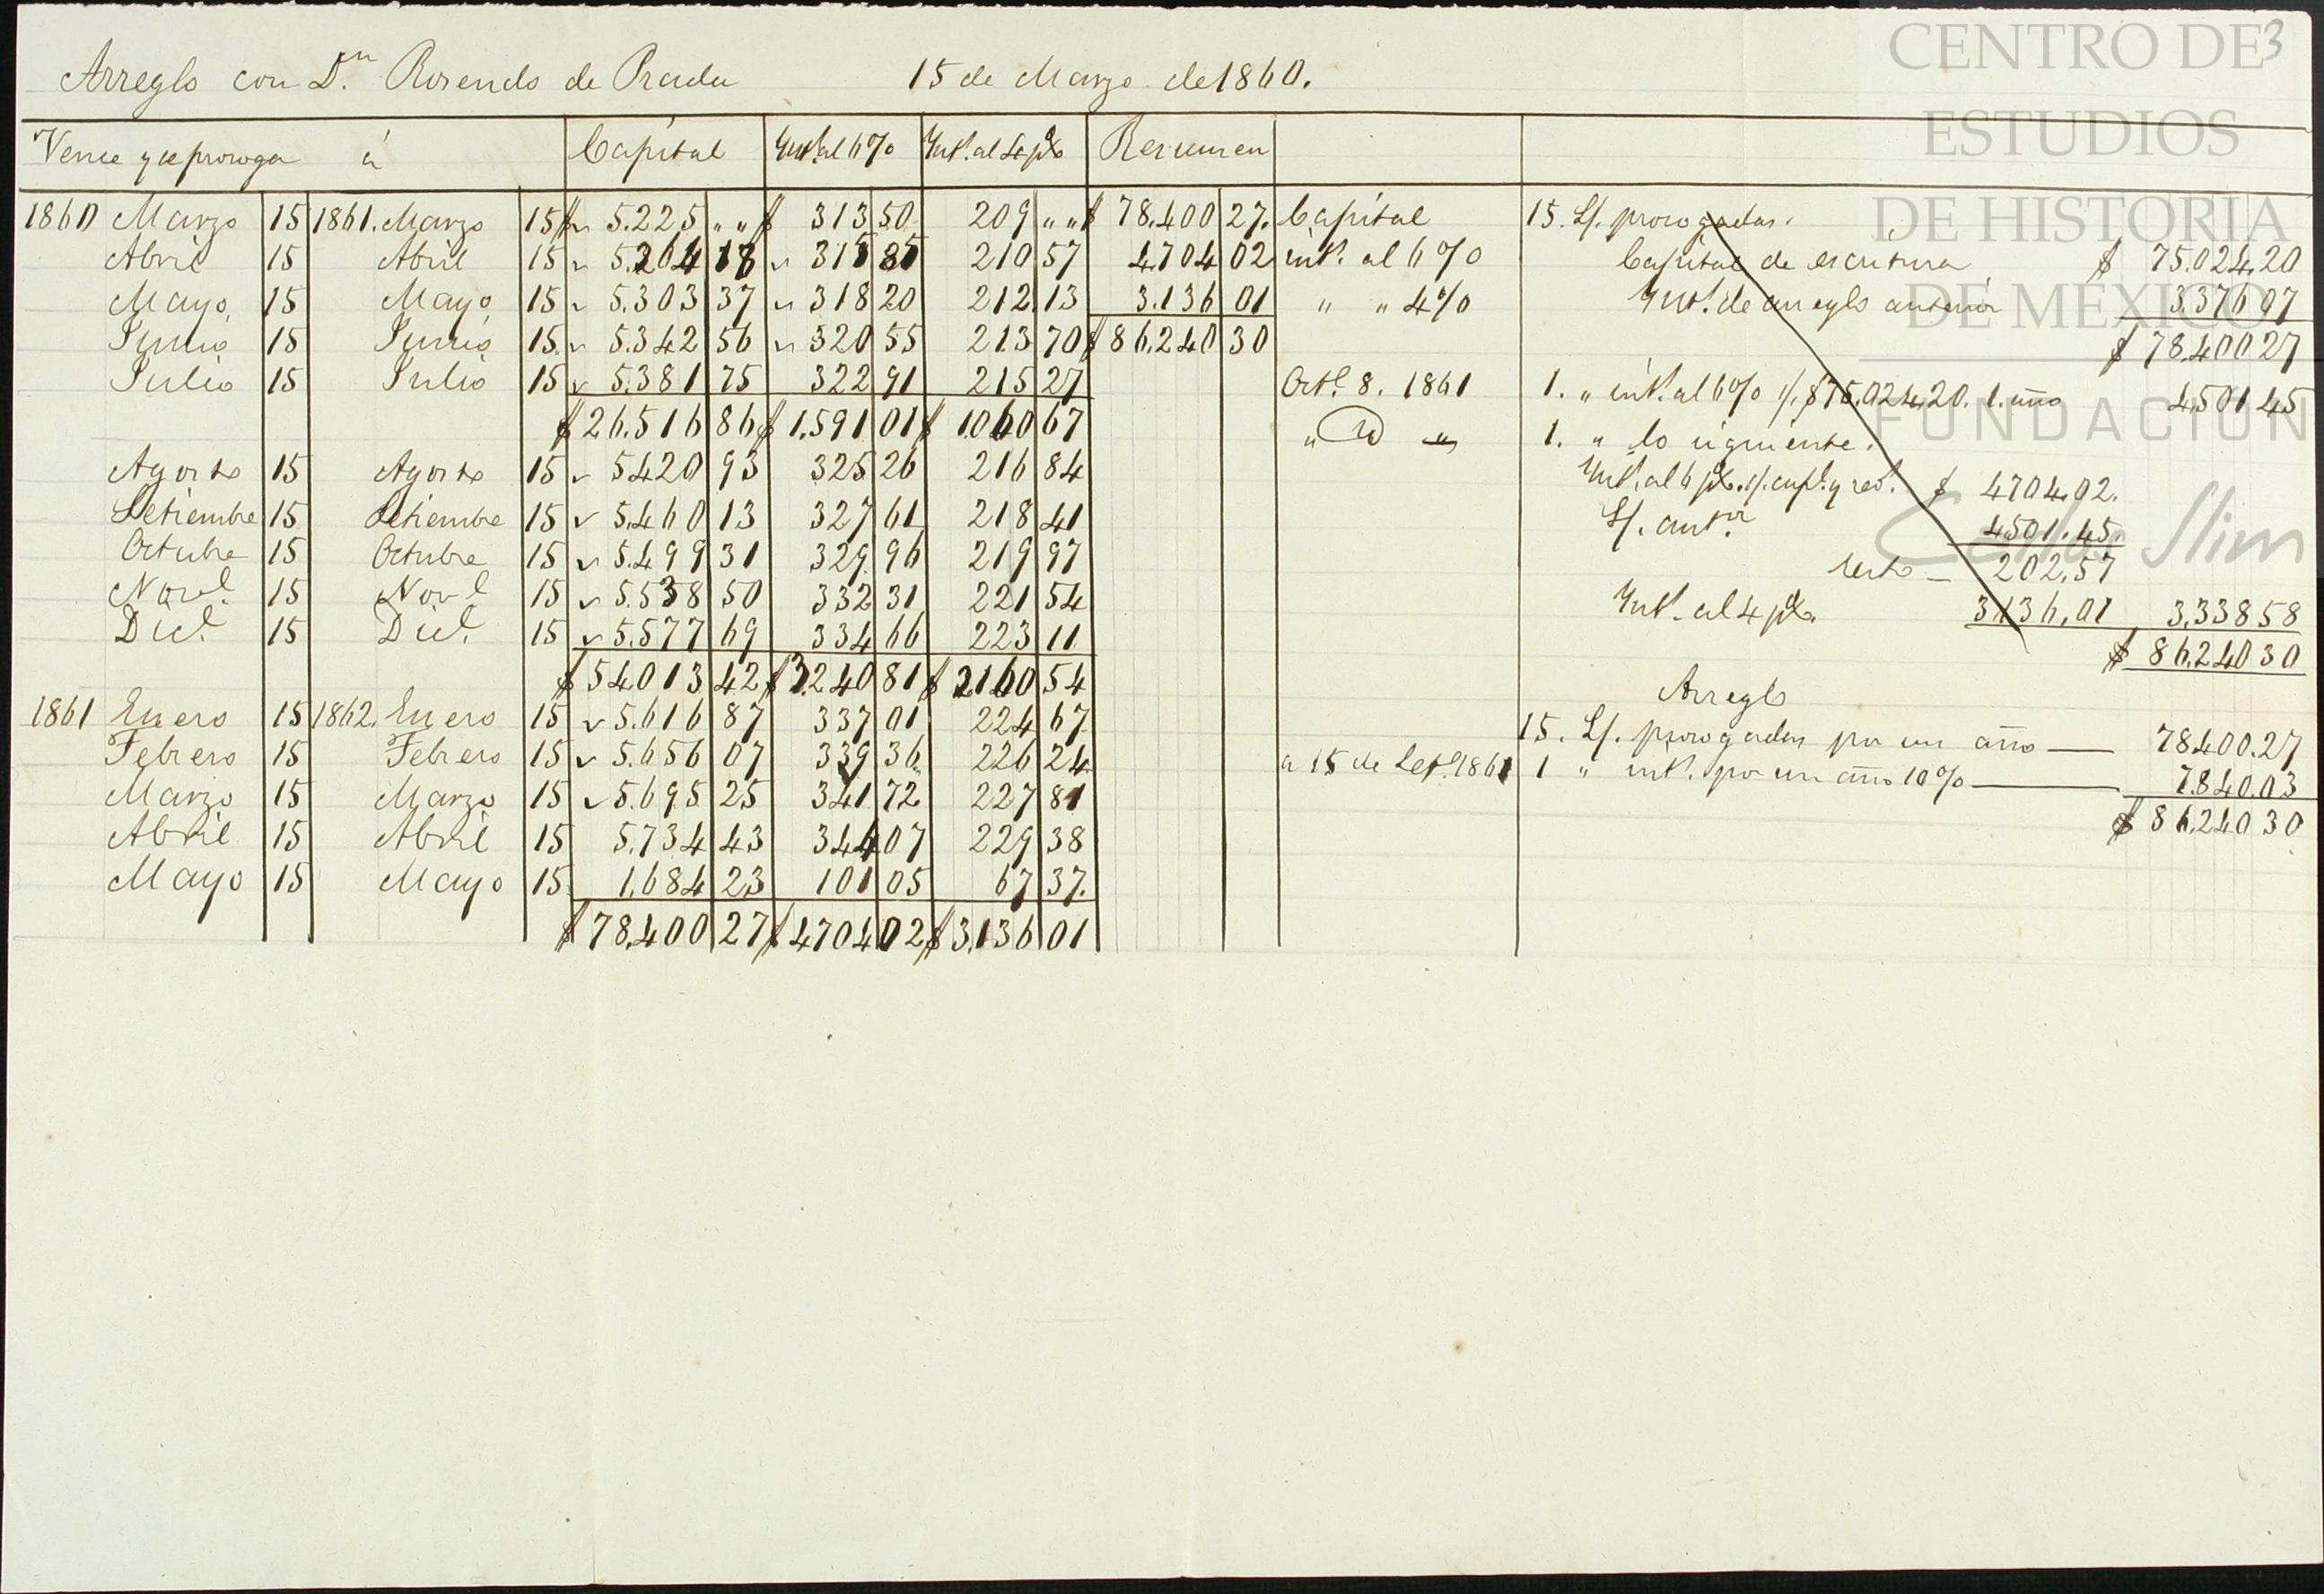 3
Arreglo con D.n Rosendo de Prada 15 de Marzo de 1860.
Vence y se proroga á Capital Int. al 6% Int. al 4 p% Resumen
1860 Marzo 15 1861. Marzo 15 $ 5.225 „ „ $ 313 50 209 „ „ $ 78.400 27. Capital 15. L/. prorogadas.
Abril 15 Abril 15 5.264 18 315 85 210 57 4.704 02 int. al 6% Capital de escritura $ 75.024.20
Mayo 15 Mayo 15 5.303 37 318 20 212.13 3.136 01 „ „ 4% Int. de arreglo anterior 3.376 07
Junio 15 Junio 15 5.342 56 320 55 213 70 $ 86.240 30 $ 78.400 27
Julio 15 Julio 15 5.381 75 322 91 215 27 Oct.e 8. 1861 1. „ int. al 6% s/. $75.024.20. 1. año 4.501 45
$ 26.516 86 $ 1.591 01 $ 1.060 67 „ „ 1. „ lo siguiente.
Agosto 15 Agosto 15 5.420 93 325 26 216 84 Int. al 6 p%. s/. cap.l y red.s $ 4704.02.
Setiembre 15 Setiembre 15 5.460 13 327 61 218 41 L/. ant.r 4.501.45.
Octubre 15 Octubre 15 5.499 31 329 96 219 97 resto — 202.57
Nov.e 15 Nov.e 15 5.538 50 332 31 221 54 Int. al 4 p%. 3.136.01 3.338 58
Dic.e 15 Dic.e 15 5.577 69 334 66 223 11 $ 86.240 30
$ 54.013 42 $ 3.240 81 $ 2.160 54 Arreglo
1861 Enero 15 1862. Enero 15 5.616 87 337 01 224 67 15. L/. prorogadas por un año — 78.400.27
Febrero 15 Febrero 15 5.656 07 339 36 226 24 a 15 de Set.e 1861 1 „ int. por un año 10% — 7.840.03
Marzo 15 Marzo 15 5.695 25 341 72 227 81 $ 86.240 30
Abril 15 Abril 15 5.734 43 344 07 229 38
Mayo 15 Mayo 15 1.684 23 101 05 67 37.
$ 78.400 27 $ 4.704 02 $ 3.136 01
CENTRO DE
ESTUDIOS
DE HISTORIA
DE MÉXICO
FUNDACIÓN
Carlos Slim